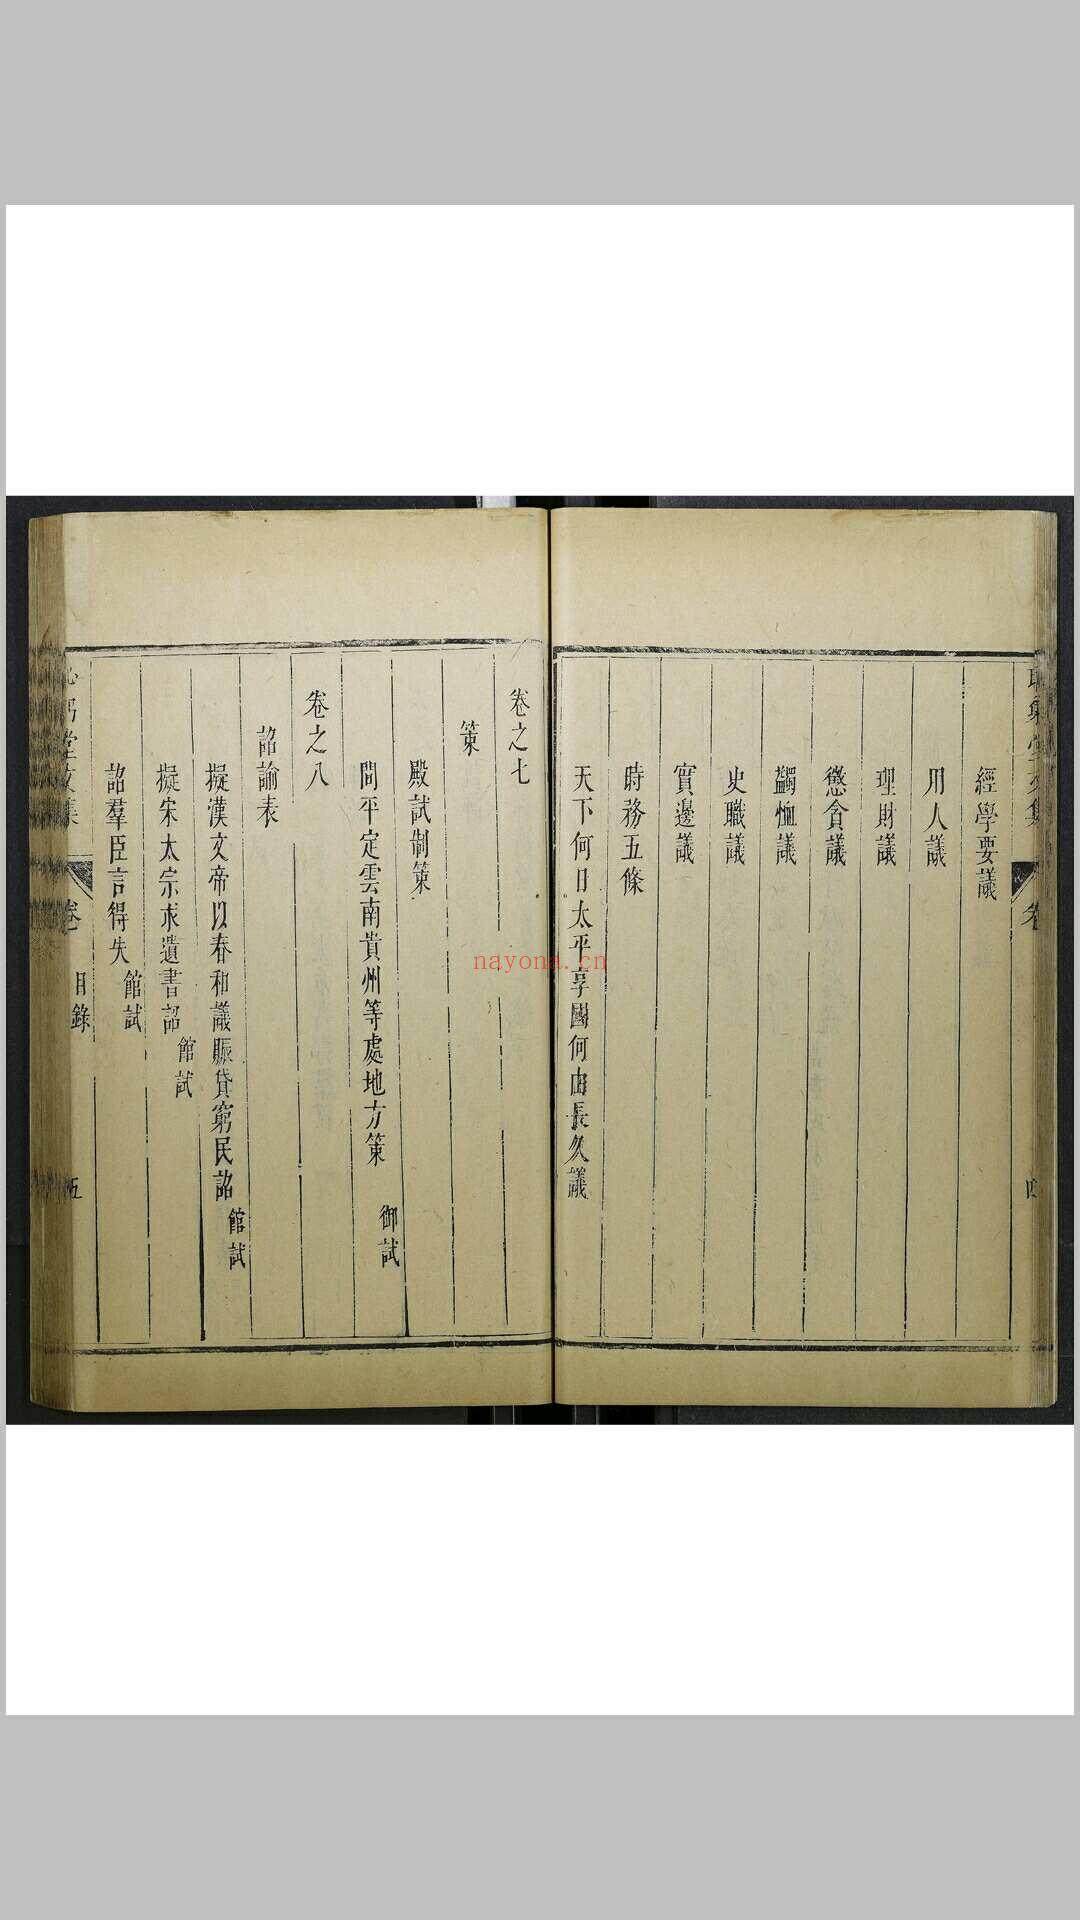 經學要議
用人議
理財議
懲貪議
蠲恤議
史職議
實邊議
時務五條
天下何日太平享國何由長久議
卷之七
策
殿試制策
問平定雲南貴州等處地方策 御試
卷之八
詔諭表
擬漢文帝以春和議賑貸窮民詔 館試
擬宋太宗求遺書詔 館試
詔羣臣言得失 館試
堂文集 卷 目錄 五
nayona.cn